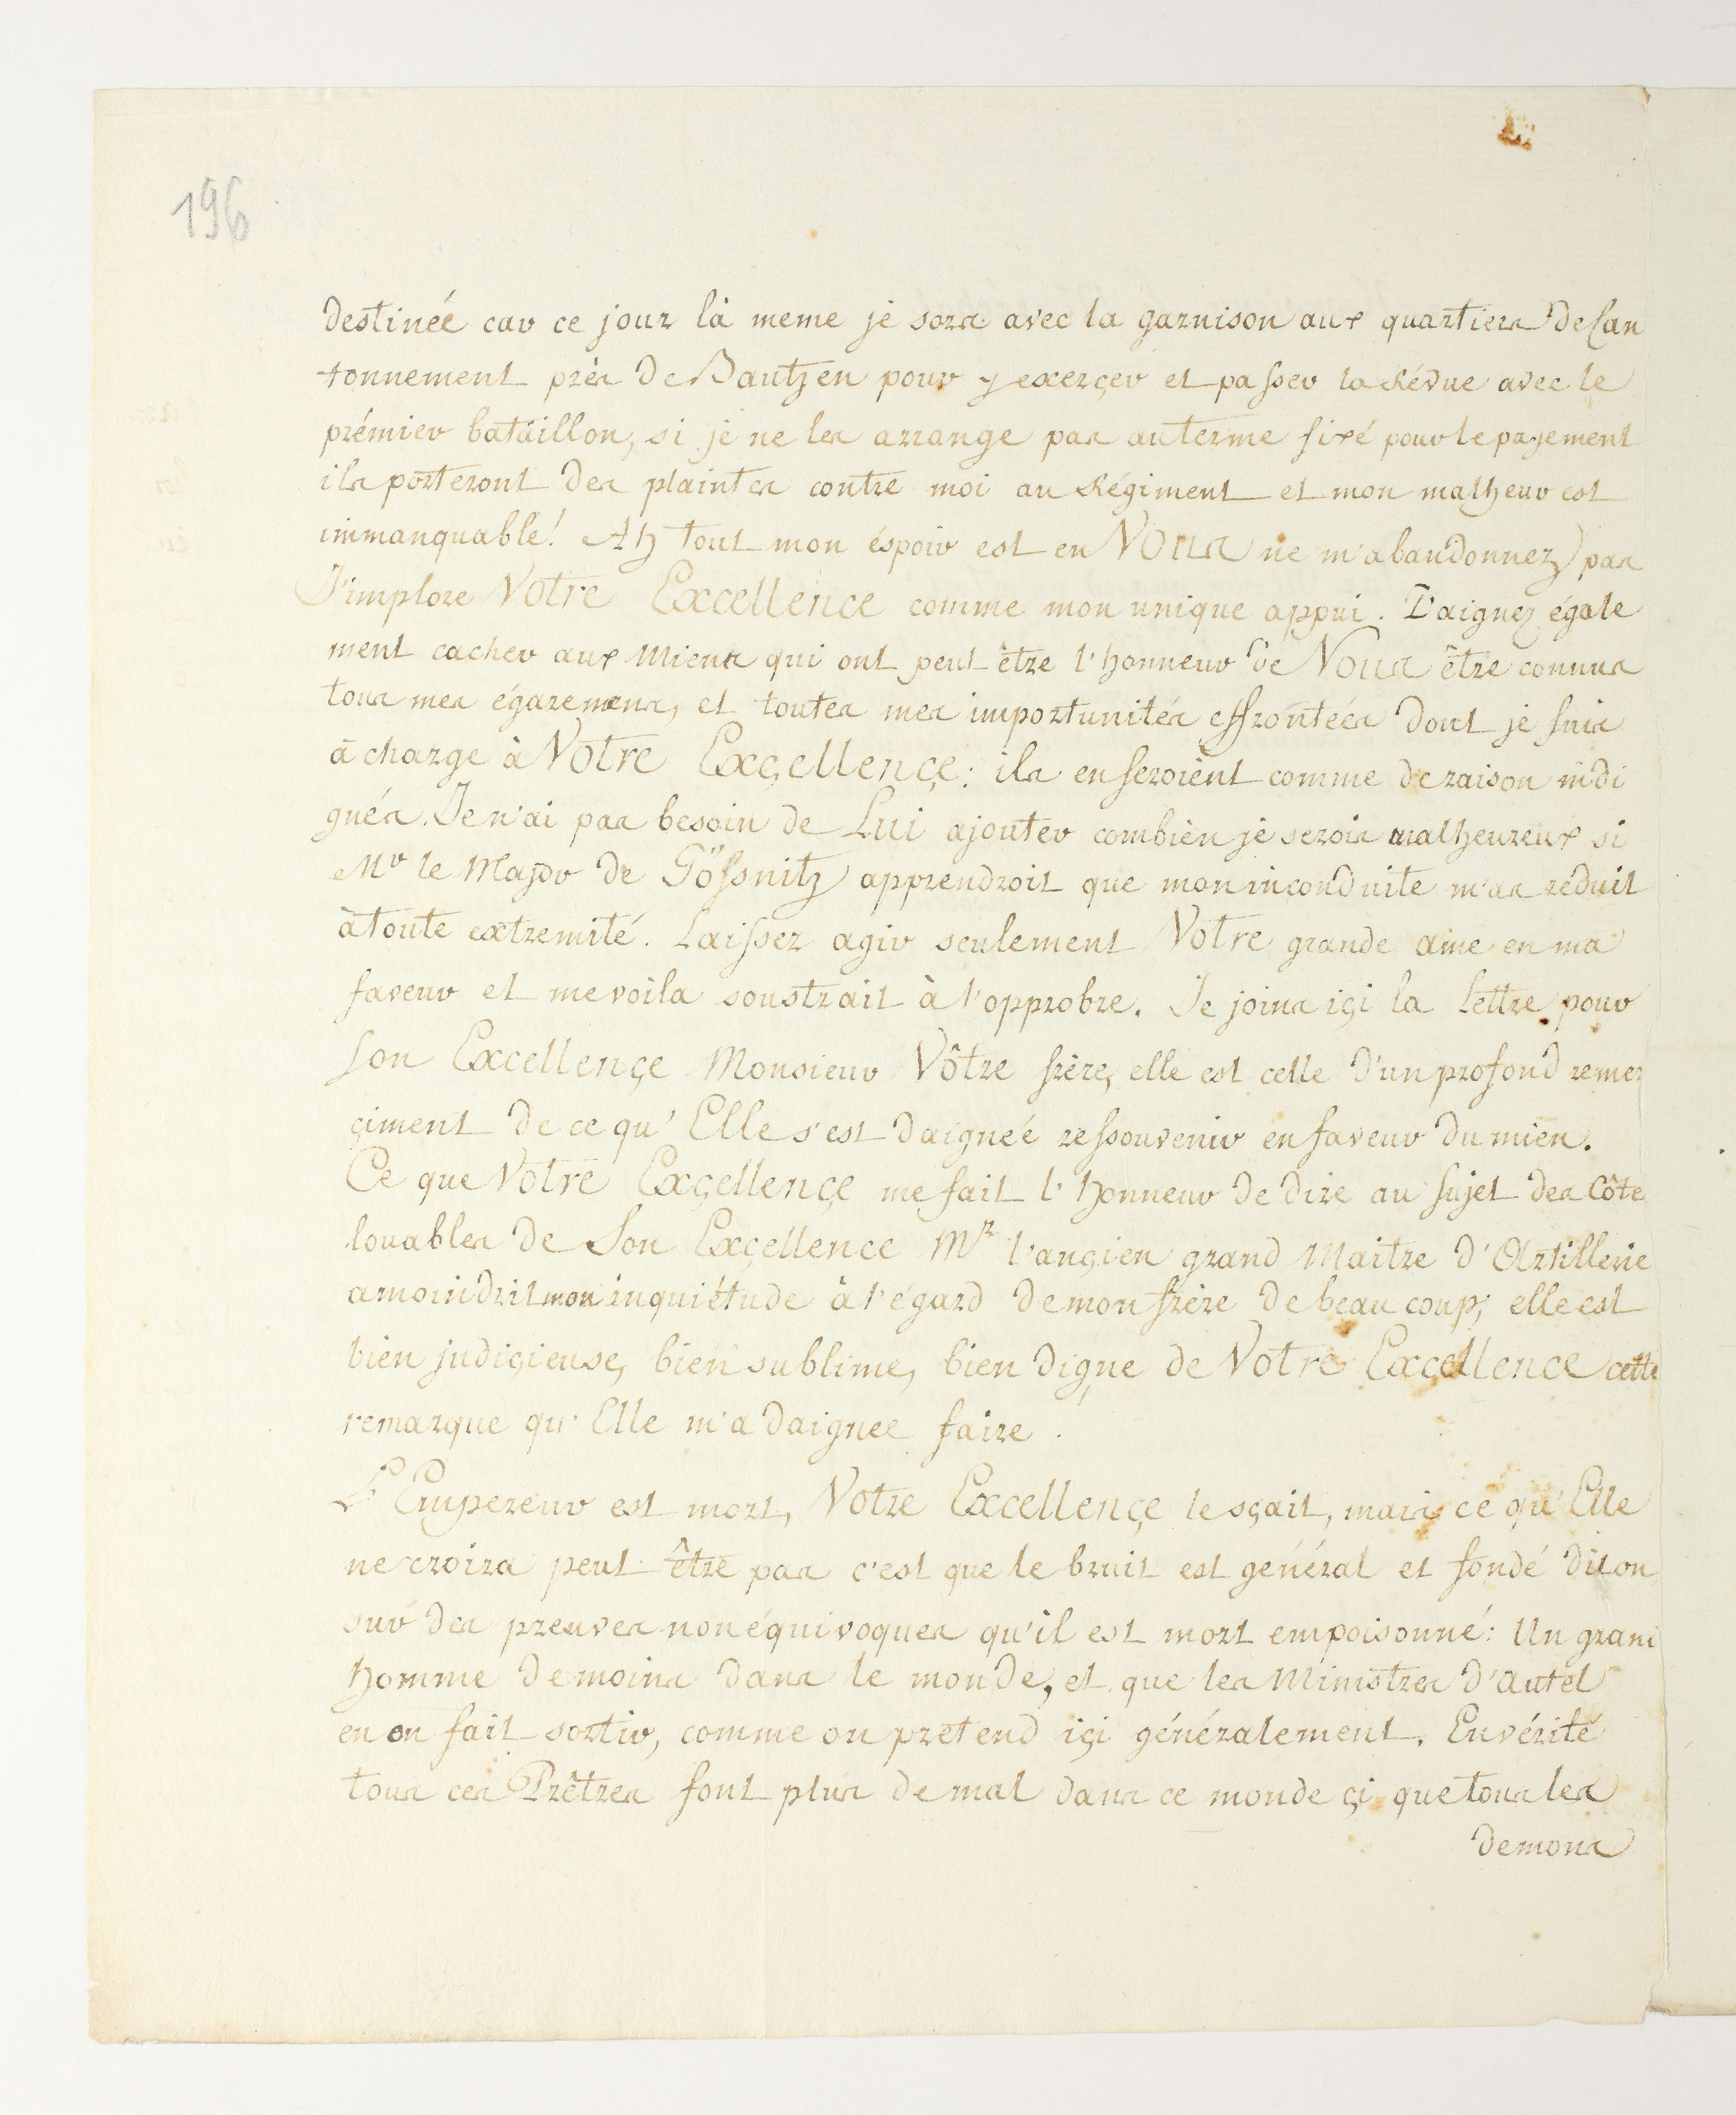 196
destinée car ce jour là meme je sors avec la garnison aux quartiers de Can
tonnement près de Bautzen pour y exerçer et passer la Révue avec le
prémier batâillon, si je ne les arrange pas au terme fixé pour le payement
ils porteront des plaintes contre moi au Régiment et mon malheur est
immanquable! Ah tout mon éspoir est en VOUS ne m'abandonnez pas
J'implore Votre Excellence comme mon unique appui. Daignez égale
ment cacher aux Miens qui ont peut être l'honneur de Vous être connus
tous mes égaremens, et toutes mes importunités effrontées dont je suis
à charge à Votre Exçellençe: ils en seroient comme de raison indi
gnés. Je n'ai pas besoin de Lui ajouter combien je serois malheureux si
Mr le Major de Gössnitz apprendroit que mon inconduite m'as reduit
à toute extremité. Laissez agir seulement Votre grande ame en ma
faveur et me voila soustrait à l'opprobre. Je joins içi la lettre pour
Son Excellençe Monsieur Vôtre frère, elle est celle d'un profond remer
çiment de ce qu'Elle s'est daigneé ressouvenir en faveur du mien.
Ce que Votre Exçellençe me fait l'honneur de dire au sujet des Côte
louables de Son Exçellence Mr l'ançien grand Maitre d'Artillerie
amoindrit mon inquiétude à l'égard de mon frère de beaucoup; elle est
bien judiçieuse, bien sublime, bien digne de Votre Exçellence cette
remarque qu'Elle m'a daignee faire.
L'Empereur est mort, Votre Excellençe le sçait, mais ce qu'Elle
ne croira peut être pas c'est que le bruit est genéral et fondé dit on
sur des preuves non équivoques qu'il est mort empoisonné: Un grand
homme de moins dans le monde, et que les Ministres d'Autel
en on fait sortir, comme on pretend içi généralement. En vérité
tous ces Prêtres font plus de mal dans ce monde çi que tous les
demons